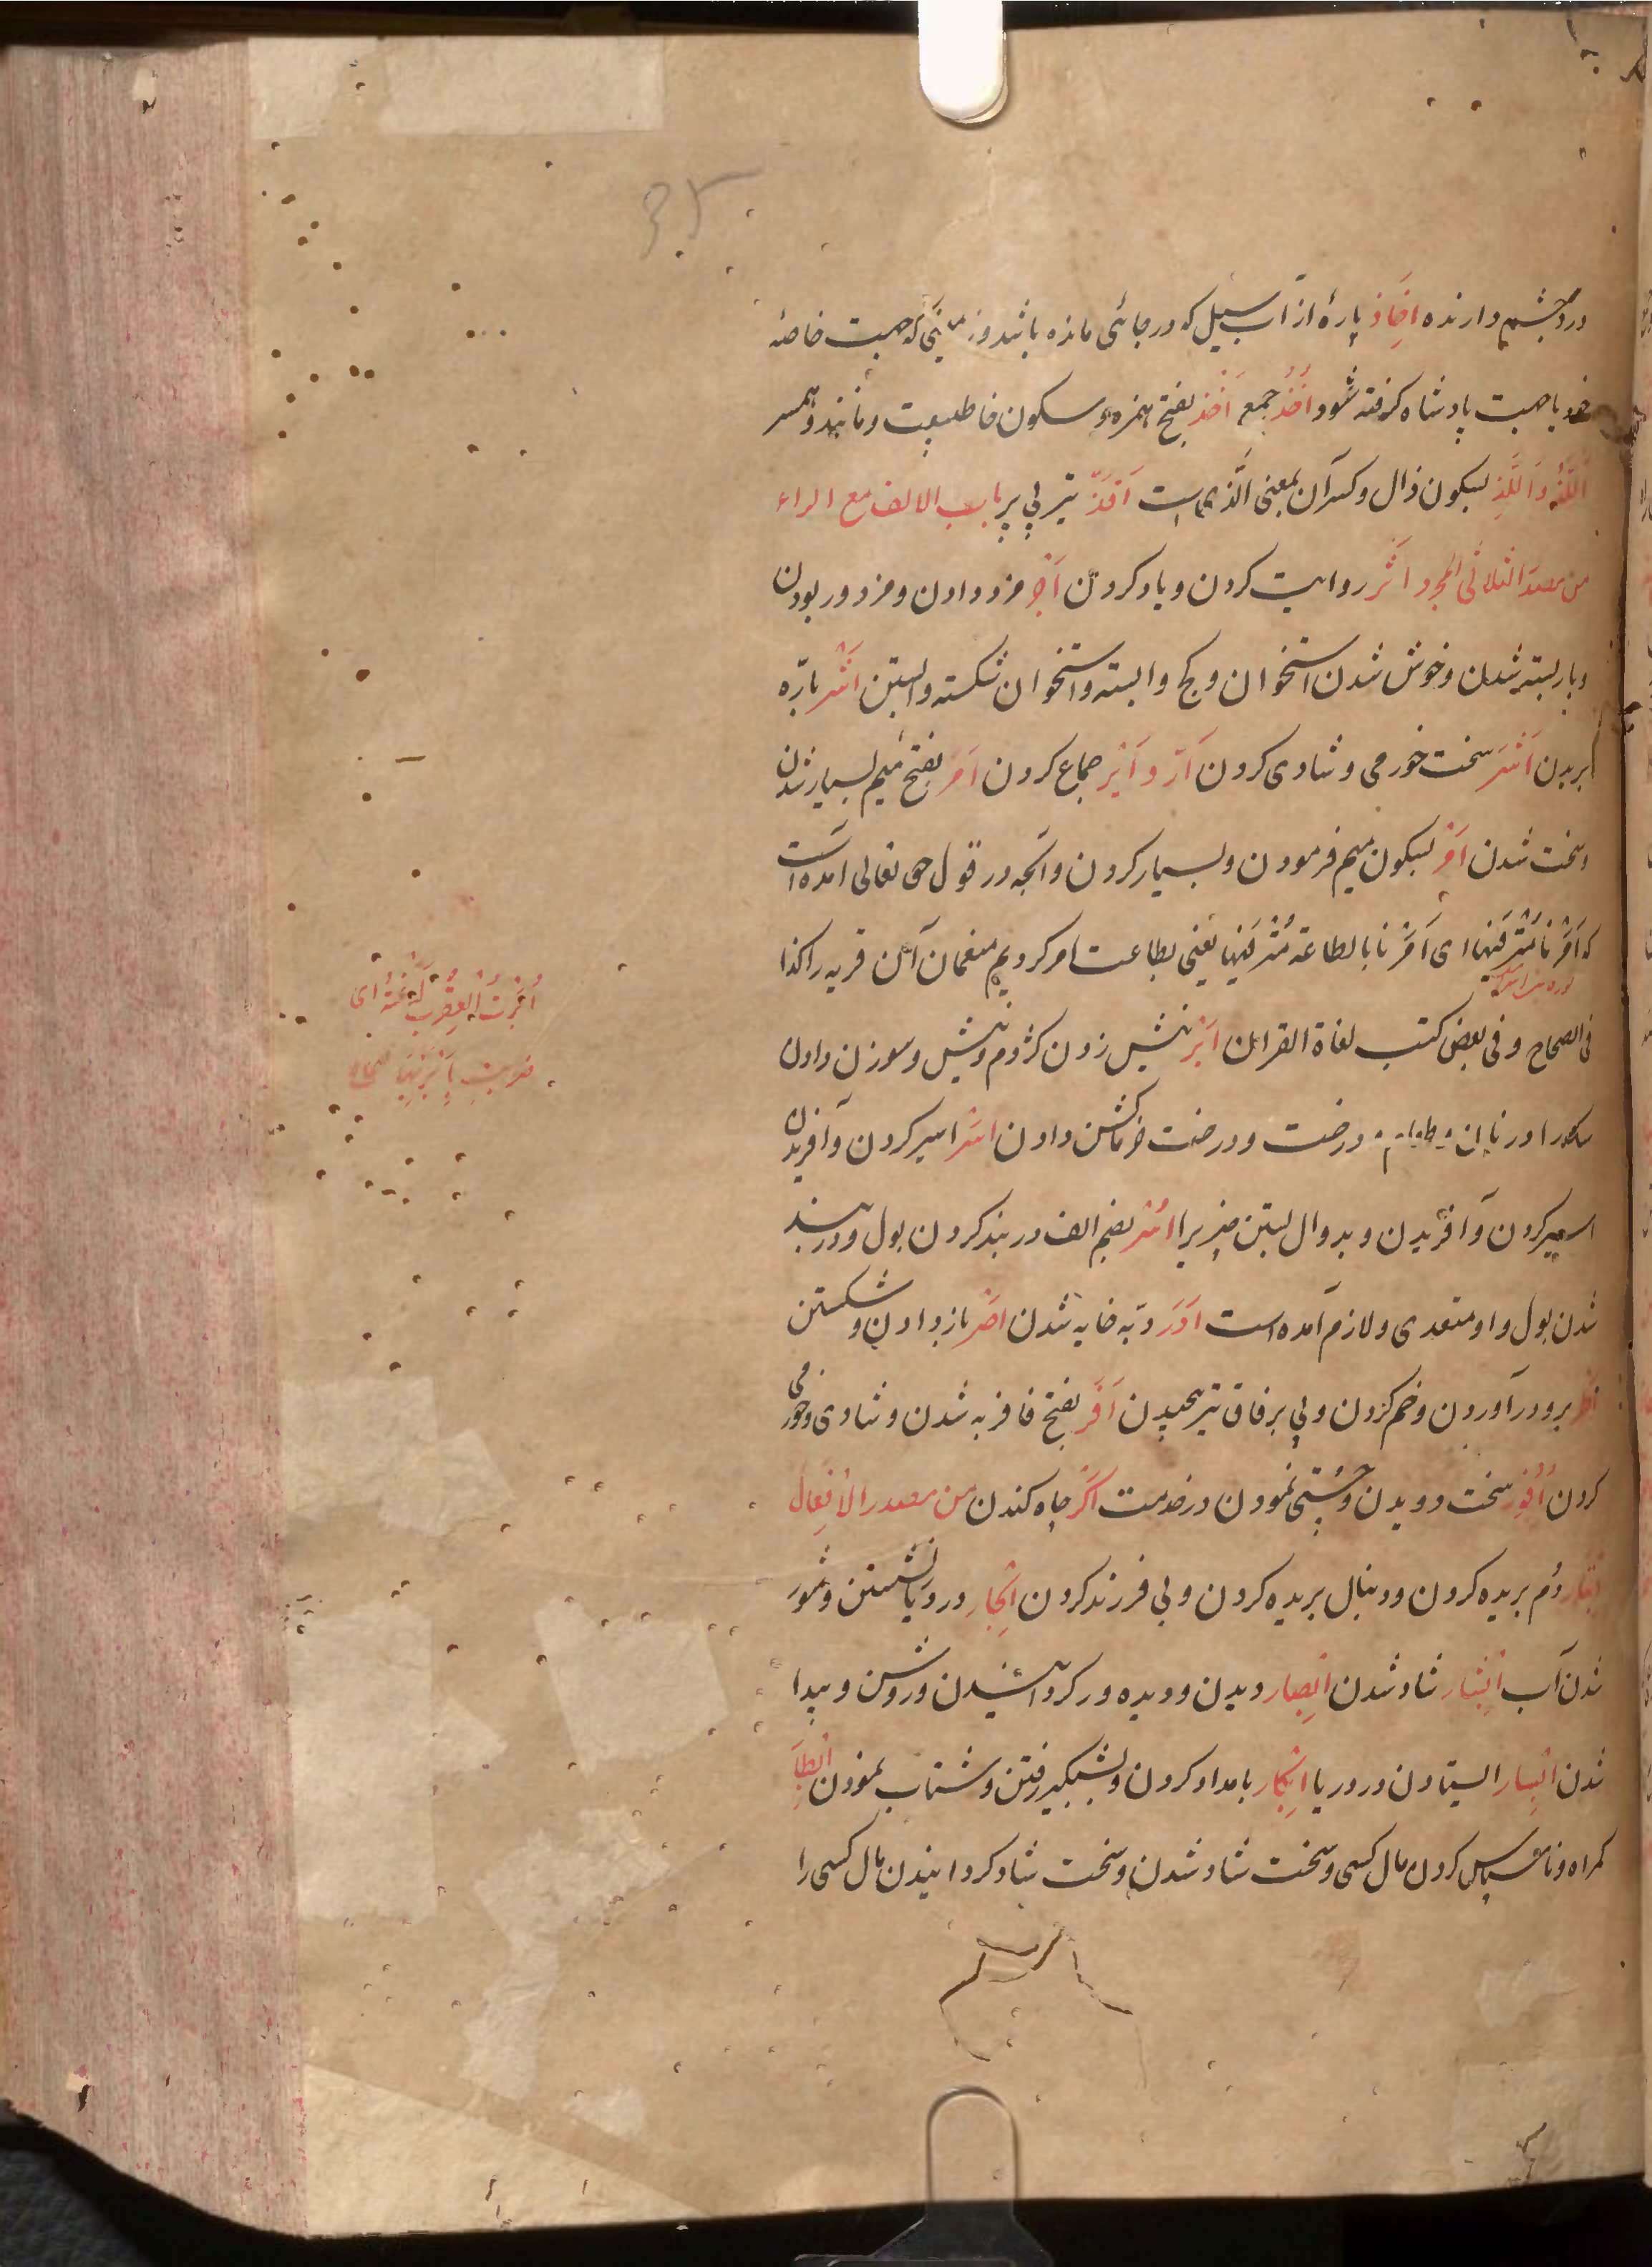 درد چشم دارنده اخاذ پارهٔ از آب سیل که در جائی مانده باشد و زمینی که جهت خاصهٔ
خود یا جهت پادشاه گرفته شود اُخُذ جمع اَخْذ بفتح همزه و سکون خا طبیعت و مانند و همسر
اَللَّذْ و اَللَّذِ بسکون ذال و کسر آن بمعنی الّذی است اَقَذّ تیر بی پر باب الالف مع الراء
من مصدر الثلاثی المجرد اَثْر روایت کردن و یاد کردن اَجْر مزد دادن و مزدور بودن
و باز بسته شدن و خوش شدن استخوان و کج وا بسته و استخوان شکسته وابستن اَشْر باره
بریدن اَشَر سخت خورمی و شادی کردن اَرّ و اَیْر جماع کردن اَمَر بفتح میم بسیار شدن
و سخت شدن اَمْر بسکون میم فرمودن و بسیار کردن و آنچه در قول حق تعالی آمده است
که اَمَرْنا مُتْرَفیها ای اَمَرْنا بالطاعة مُتْرَفیها یعنی بطاعت امر کردیم منعمان آن قریه را کذا
فی الصحاح و فی بعض کتب لغاة القرآن اَبْر نیش زدن کژدم و نیش و سوزن دادن
درخت و درخت خرما کشن دادن اَسْر اسیر کردن و آفریدن
اسیر کردن و آفریدن و بدوال بستن چیزیرا اُسْر بضم الف در بند کردن بول و در بند
شدن بول و او متعدی و لازم آمده است اَدَر دبّه خایه شدن اَصْر باز دادن و شکستن
برو در آوردن و خم کردن و پی بر فاق تیر پیچیدن اَفَر بفتح فا فربه شدن و شادی و خورمی
کردن اُفُور سخت دویدن و چستی نمودن در خدمت اَکْر چاه کندن من مصدر الافعال
اِبْتار دُم بریده کردن و دنبال بریده کردن و بی فرزند کردن اِبْحار در دریا نشستن و شور
شدن آب اِبْشار شاد شدن اِبْصار دیدن و دیده ور کردانیدن و روشن و پیدا
شدن اِبْسار ایستادن در دریا اِبْکار بامداد کردن و بشبگیر رفتن و شتاب نمودن اِبْطار
گمراه و ناسپاس کردن مال کسی و سخت شاد شدن و سخت شاد کردانیدن مال کسی را
اُبِرَتْ العقرب لدغته ای
ضربت بابرتها صحاح